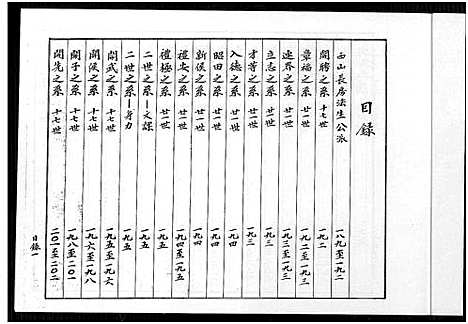 目錄
西山長房法生公派 一八九至一九二
開聘之系 十七世 一九二
章福之系 廿一世 一九二至一九三
達界之系 廿一世 一九三至一九三
立志之系 廿一世 一九三
才芳之系 廿一世 一九三
入德之系 廿一世 一九四
昭田之系 廿一世 一九四
新侯之系 廿一世 一九四
禮安之系 廿一世 一九四至一九五
禮極之系 廿一世 一九五
二世之系—文謀 一九五
二世之系—壽力 一九五
開武之系 十七世 一九五至一九六
開侯之系 十七世 一九六至一九八
開子之系 十七世 一九八至二〇一
開先之系 十七世 二〇一至二〇二
目錄一